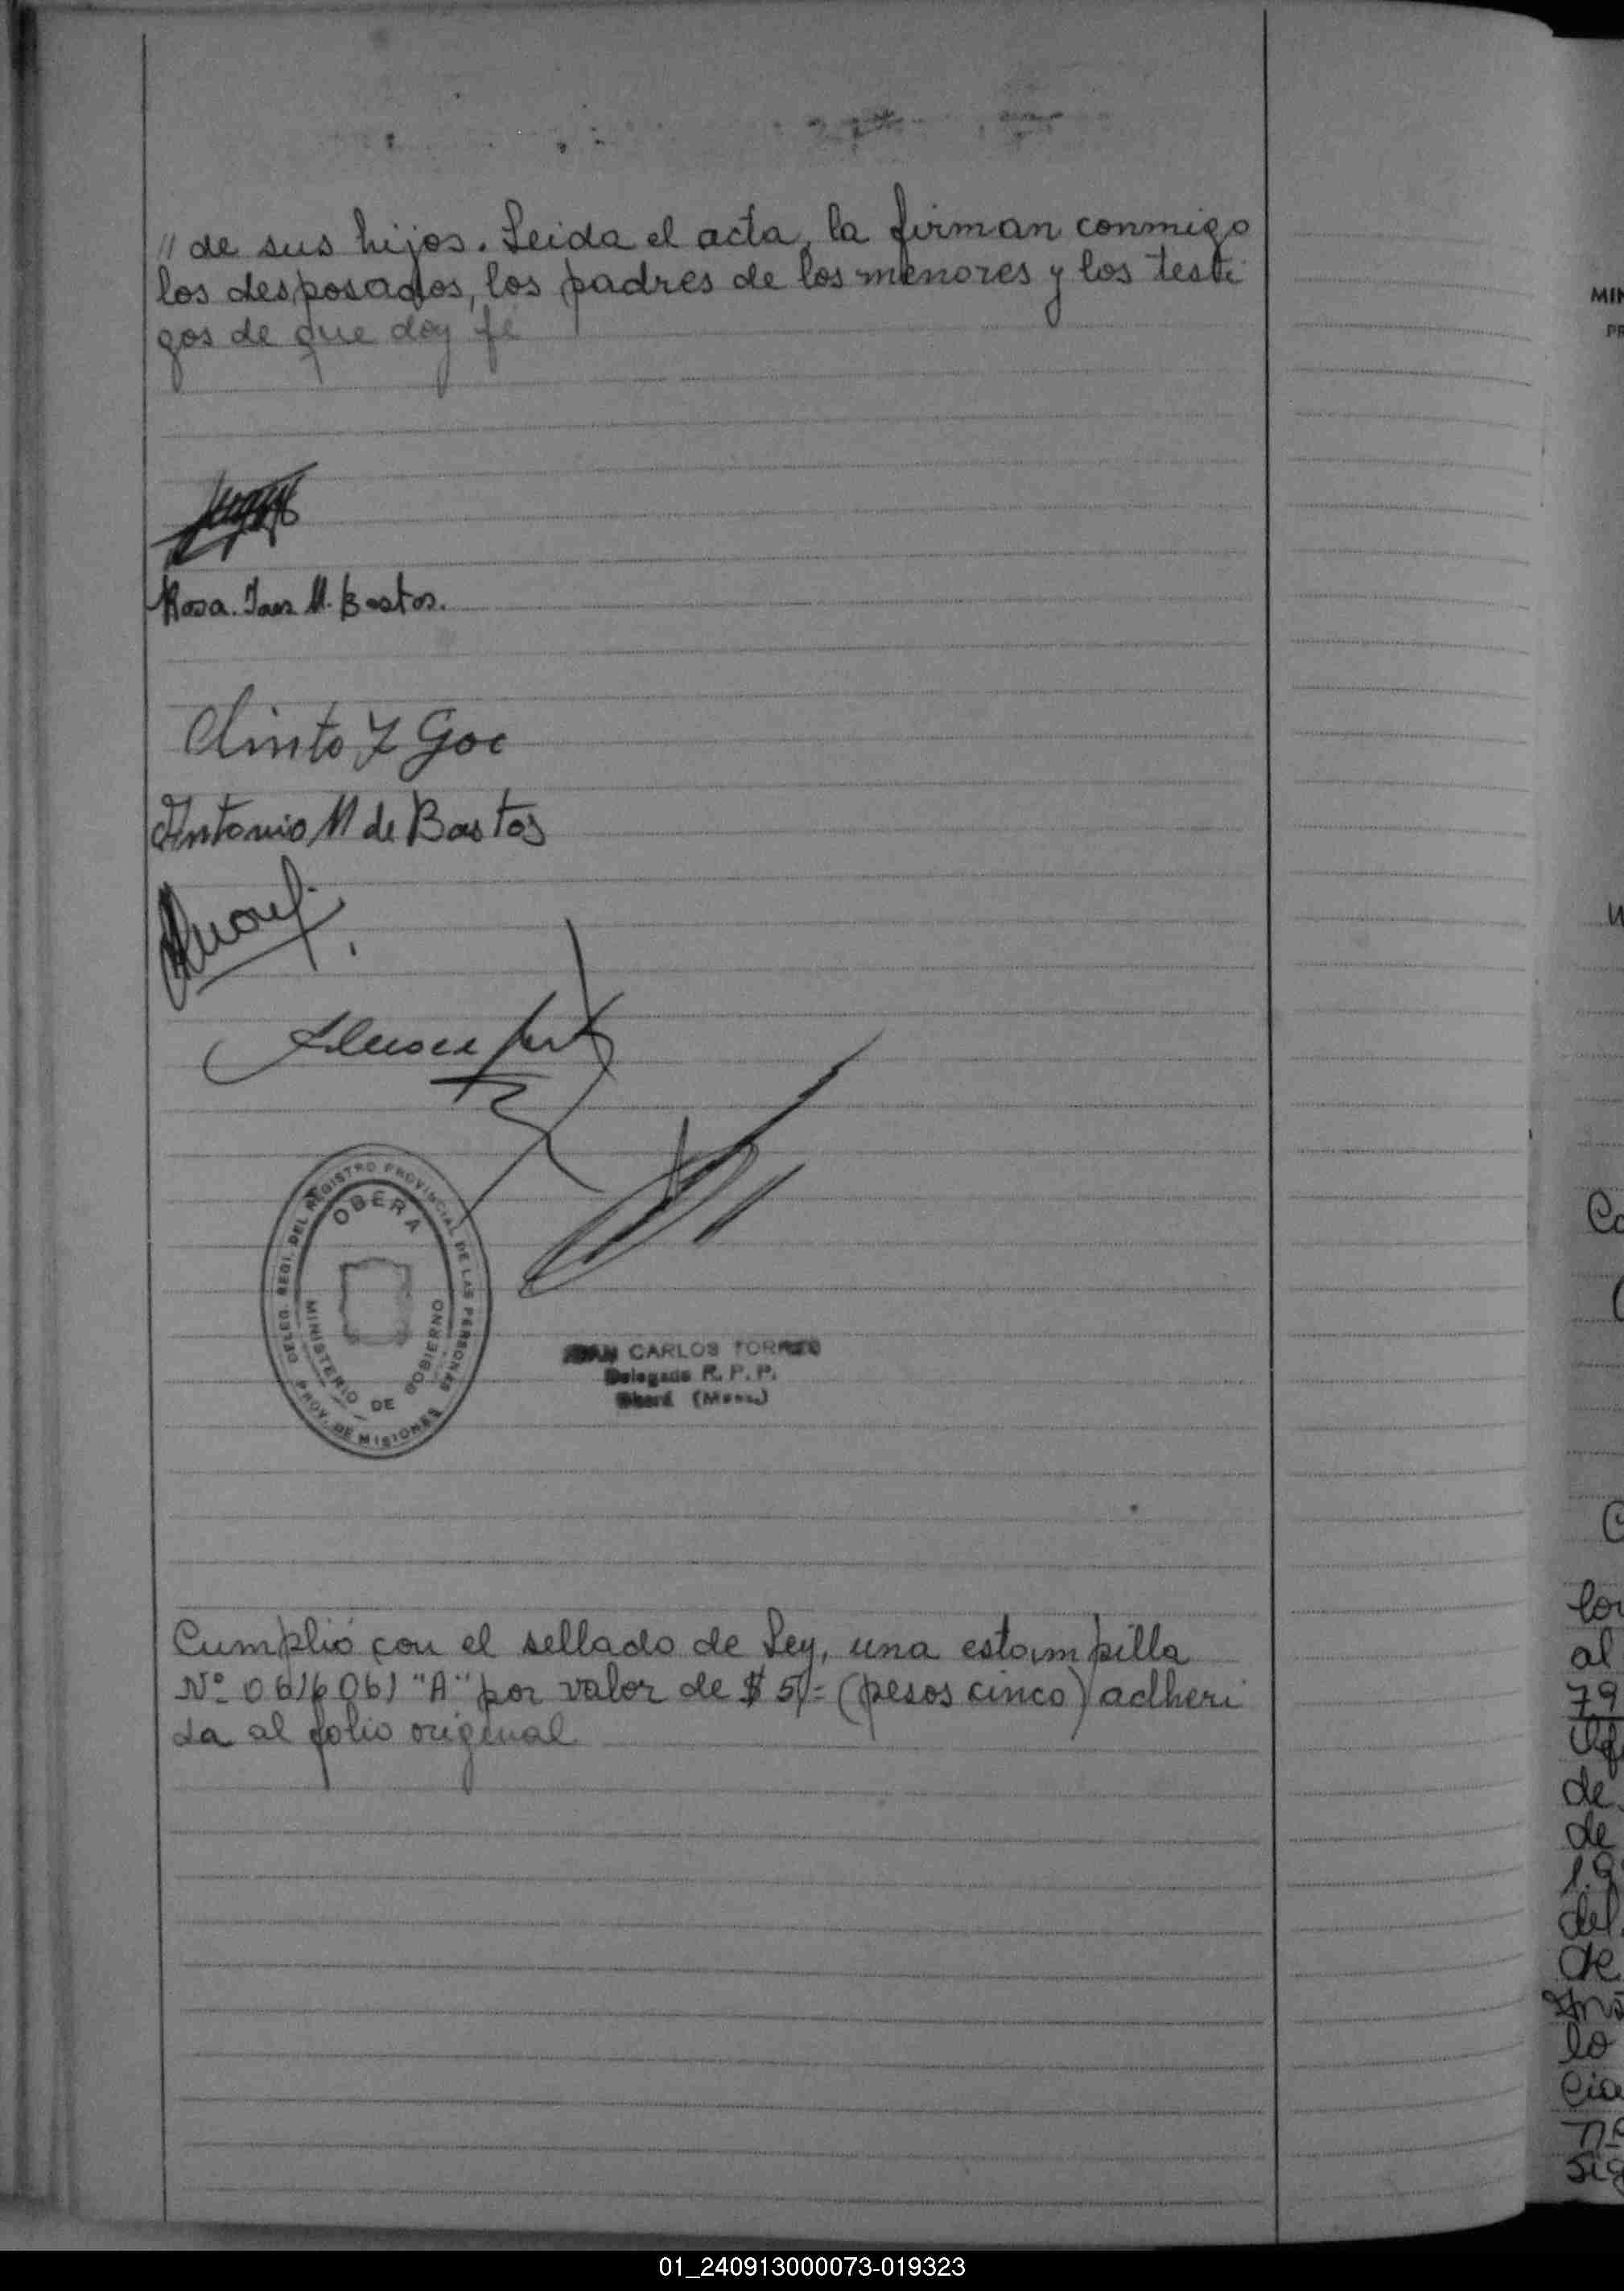 // de sus hijos. Leida el acta, la firman conmigo
los desposados, los padres de los menores y los testi
gos de que doy fé
Rosa. Ines M. Bastos.
Antonio M de Bastos
DELEG. REGI. DEL REGISTRO PROVINCIAL DE LAS PERSONAS
OBERA
MINISTERIO DE GOBIERNO
PROV. DE MISIONES
JUAN CARLOS TORRES
Delegado R. P. P.
Oberá (Mnes.)
Cumplió con el sellado de Ley, una estampilla
Nº 0616061 "A" por valor de $ 5,= (pesos cinco) adheri
da al folio original
MIN
PR
lo
al
79
de
de
19
del
de
lo
cia
sig
01_240913000073-019323